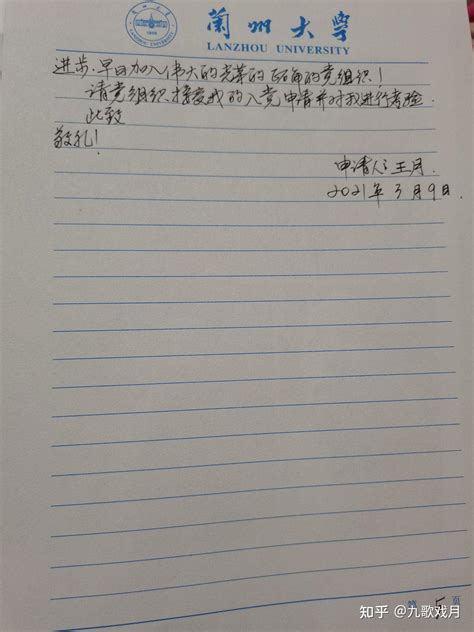 蘭州大學
LANZHOU UNIVERSITY
进步.早日加入伟大的光荣的正确的党组织!
请党组织接受我的入党申请并对我进行考验.
此致
敬礼!
申请人:王月.
2021年3月9日.
第 5 页
知乎 @九歌戏月